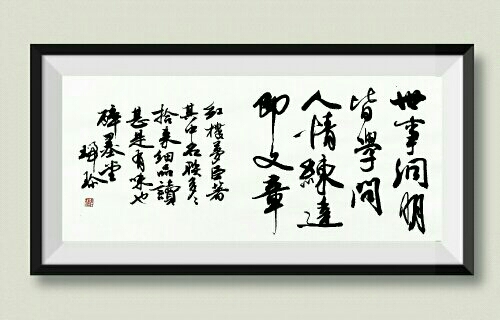 世事洞明
皆學問
人情練達
即文章
紅樓夢巨著
其中名联多々
拾來細品讀
甚是有味也
碎墨堂